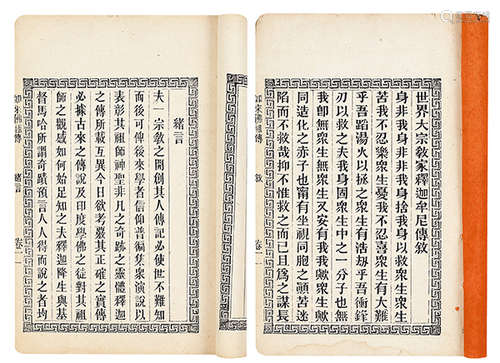 世界大宗敎家釋迦牟尼傳敘
身非我身非非我身捨我身以救衆生衆生
苦我不忍樂衆生憂我不忍喜衆生有大難
乎吾蹈湯火以拯之衆生有浩劫乎吾衝鋒
刃以救之夫我身固衆生中之一分子也無
我卽無衆生無衆生又安有我我歟衆生歟
同造化之赤子也甯有坐視同胞之顚苦迷
陷而不救哉抑不惟救之而已且爲之謀長
如來佛祖傳 敘 卷一
緒言
夫一宗敎之開創其人傳記必使世不難知
而後可俾後來學者信仰普徧集衆演說以
表彰其祖師神聖非凡之奇跡之靈體釋迦
之傳所載互異今日欲考覈其正確之實傳
必據古來之傳說及印度學佛之徒對其祖
師之觀感如何始足知之夫釋迦降生與基
督馬哈所謂奇蹟預言人人得而說之者均
如來佛祖傳 緒言 卷一